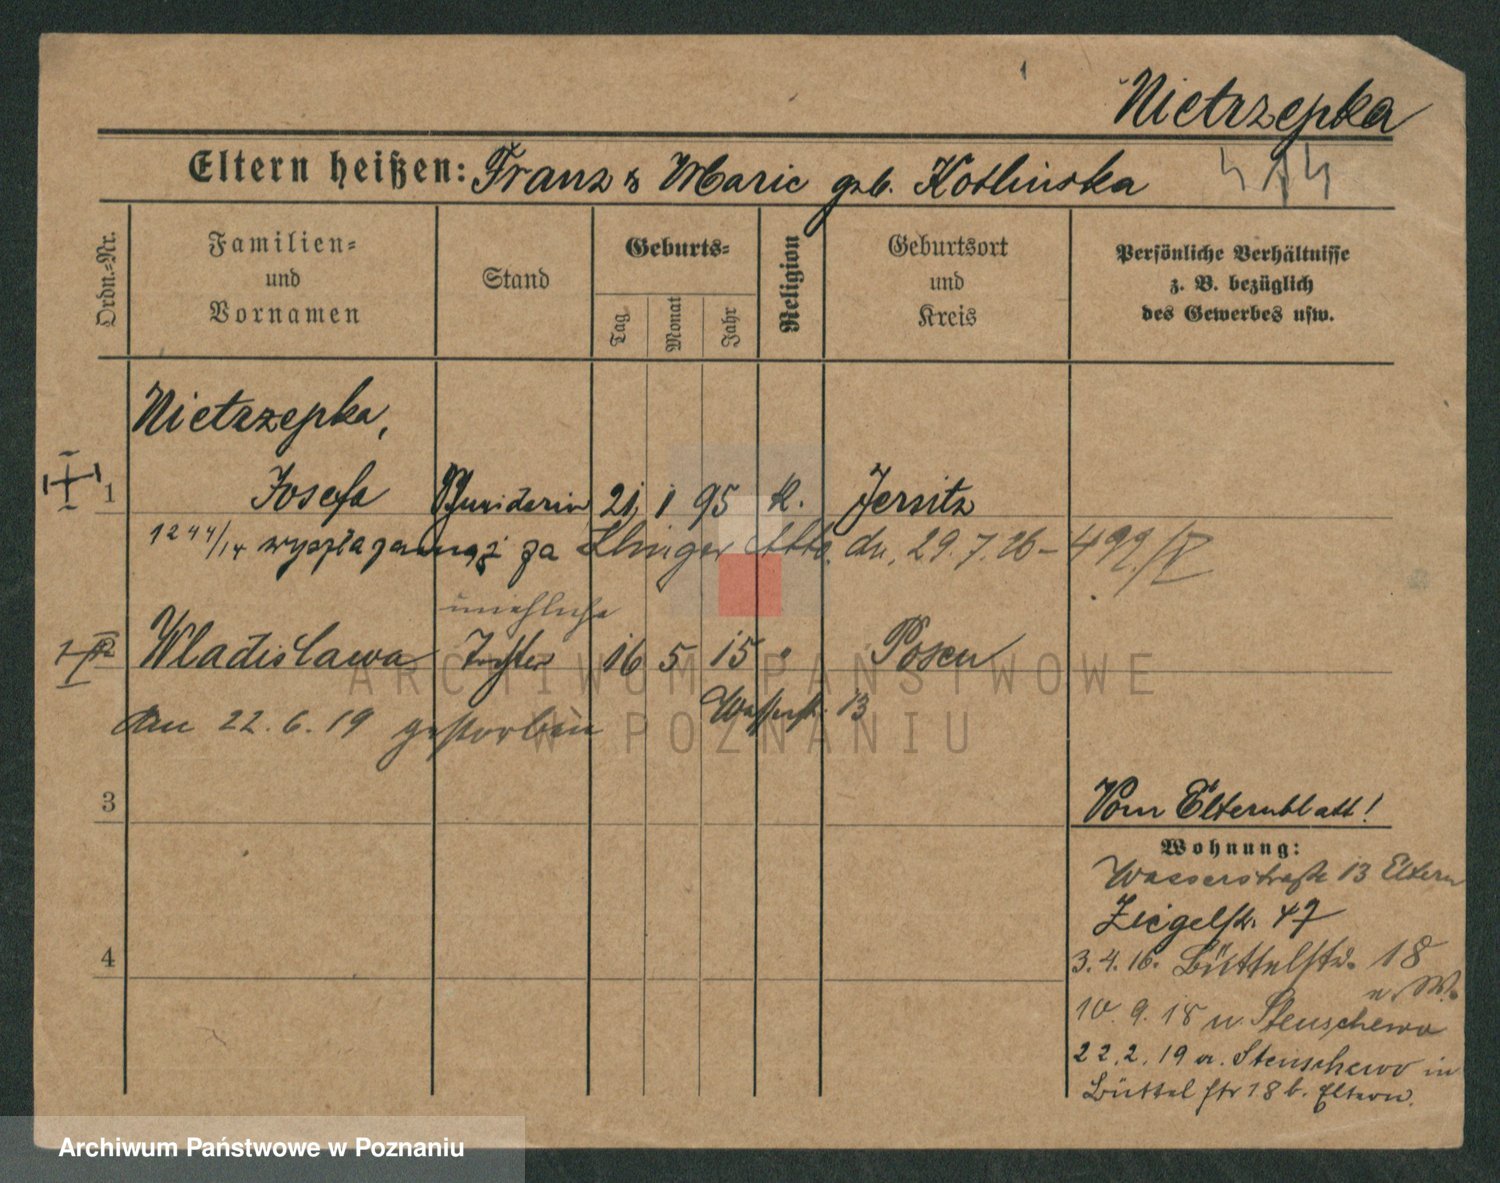 Nietrzepka
Eltern heißen: Franz & Marie geb. Kotlinska
Ordn.-Nr.
Familien-
und
Vornamen
Stand
Geburts-
Tag
Monat
Jahr
Religion
Geburtsort
und
Kreis
Persönliche Verhältnisse
z. B. bezüglich
des Gewerbes usw.
Nietrzepka,
1 Josefa 21 1 95 K. Jersitz
1244/14 za Klinger Otto dn. 29.7.26 - 499/V
unehliche
2 Wladislawa Tochter 16 5 15 " Posen
am 22.6.19 gestorben Wasserstr. 13
3
Vom Elternblatt!
Wohnung:
Wasserstraße 13 Eltern
Ziegelstr. 47
4
3.4.16. Büttelstr. 18
n. W.
10.9.18 n. Stenschewo
22.2.19 v. Stenschewo in
Büttelstr 18 b. Eltern.
ARCHIWUM PAŃSTWOWE
W POZNANIU
Archiwum Państwowe w Poznaniu